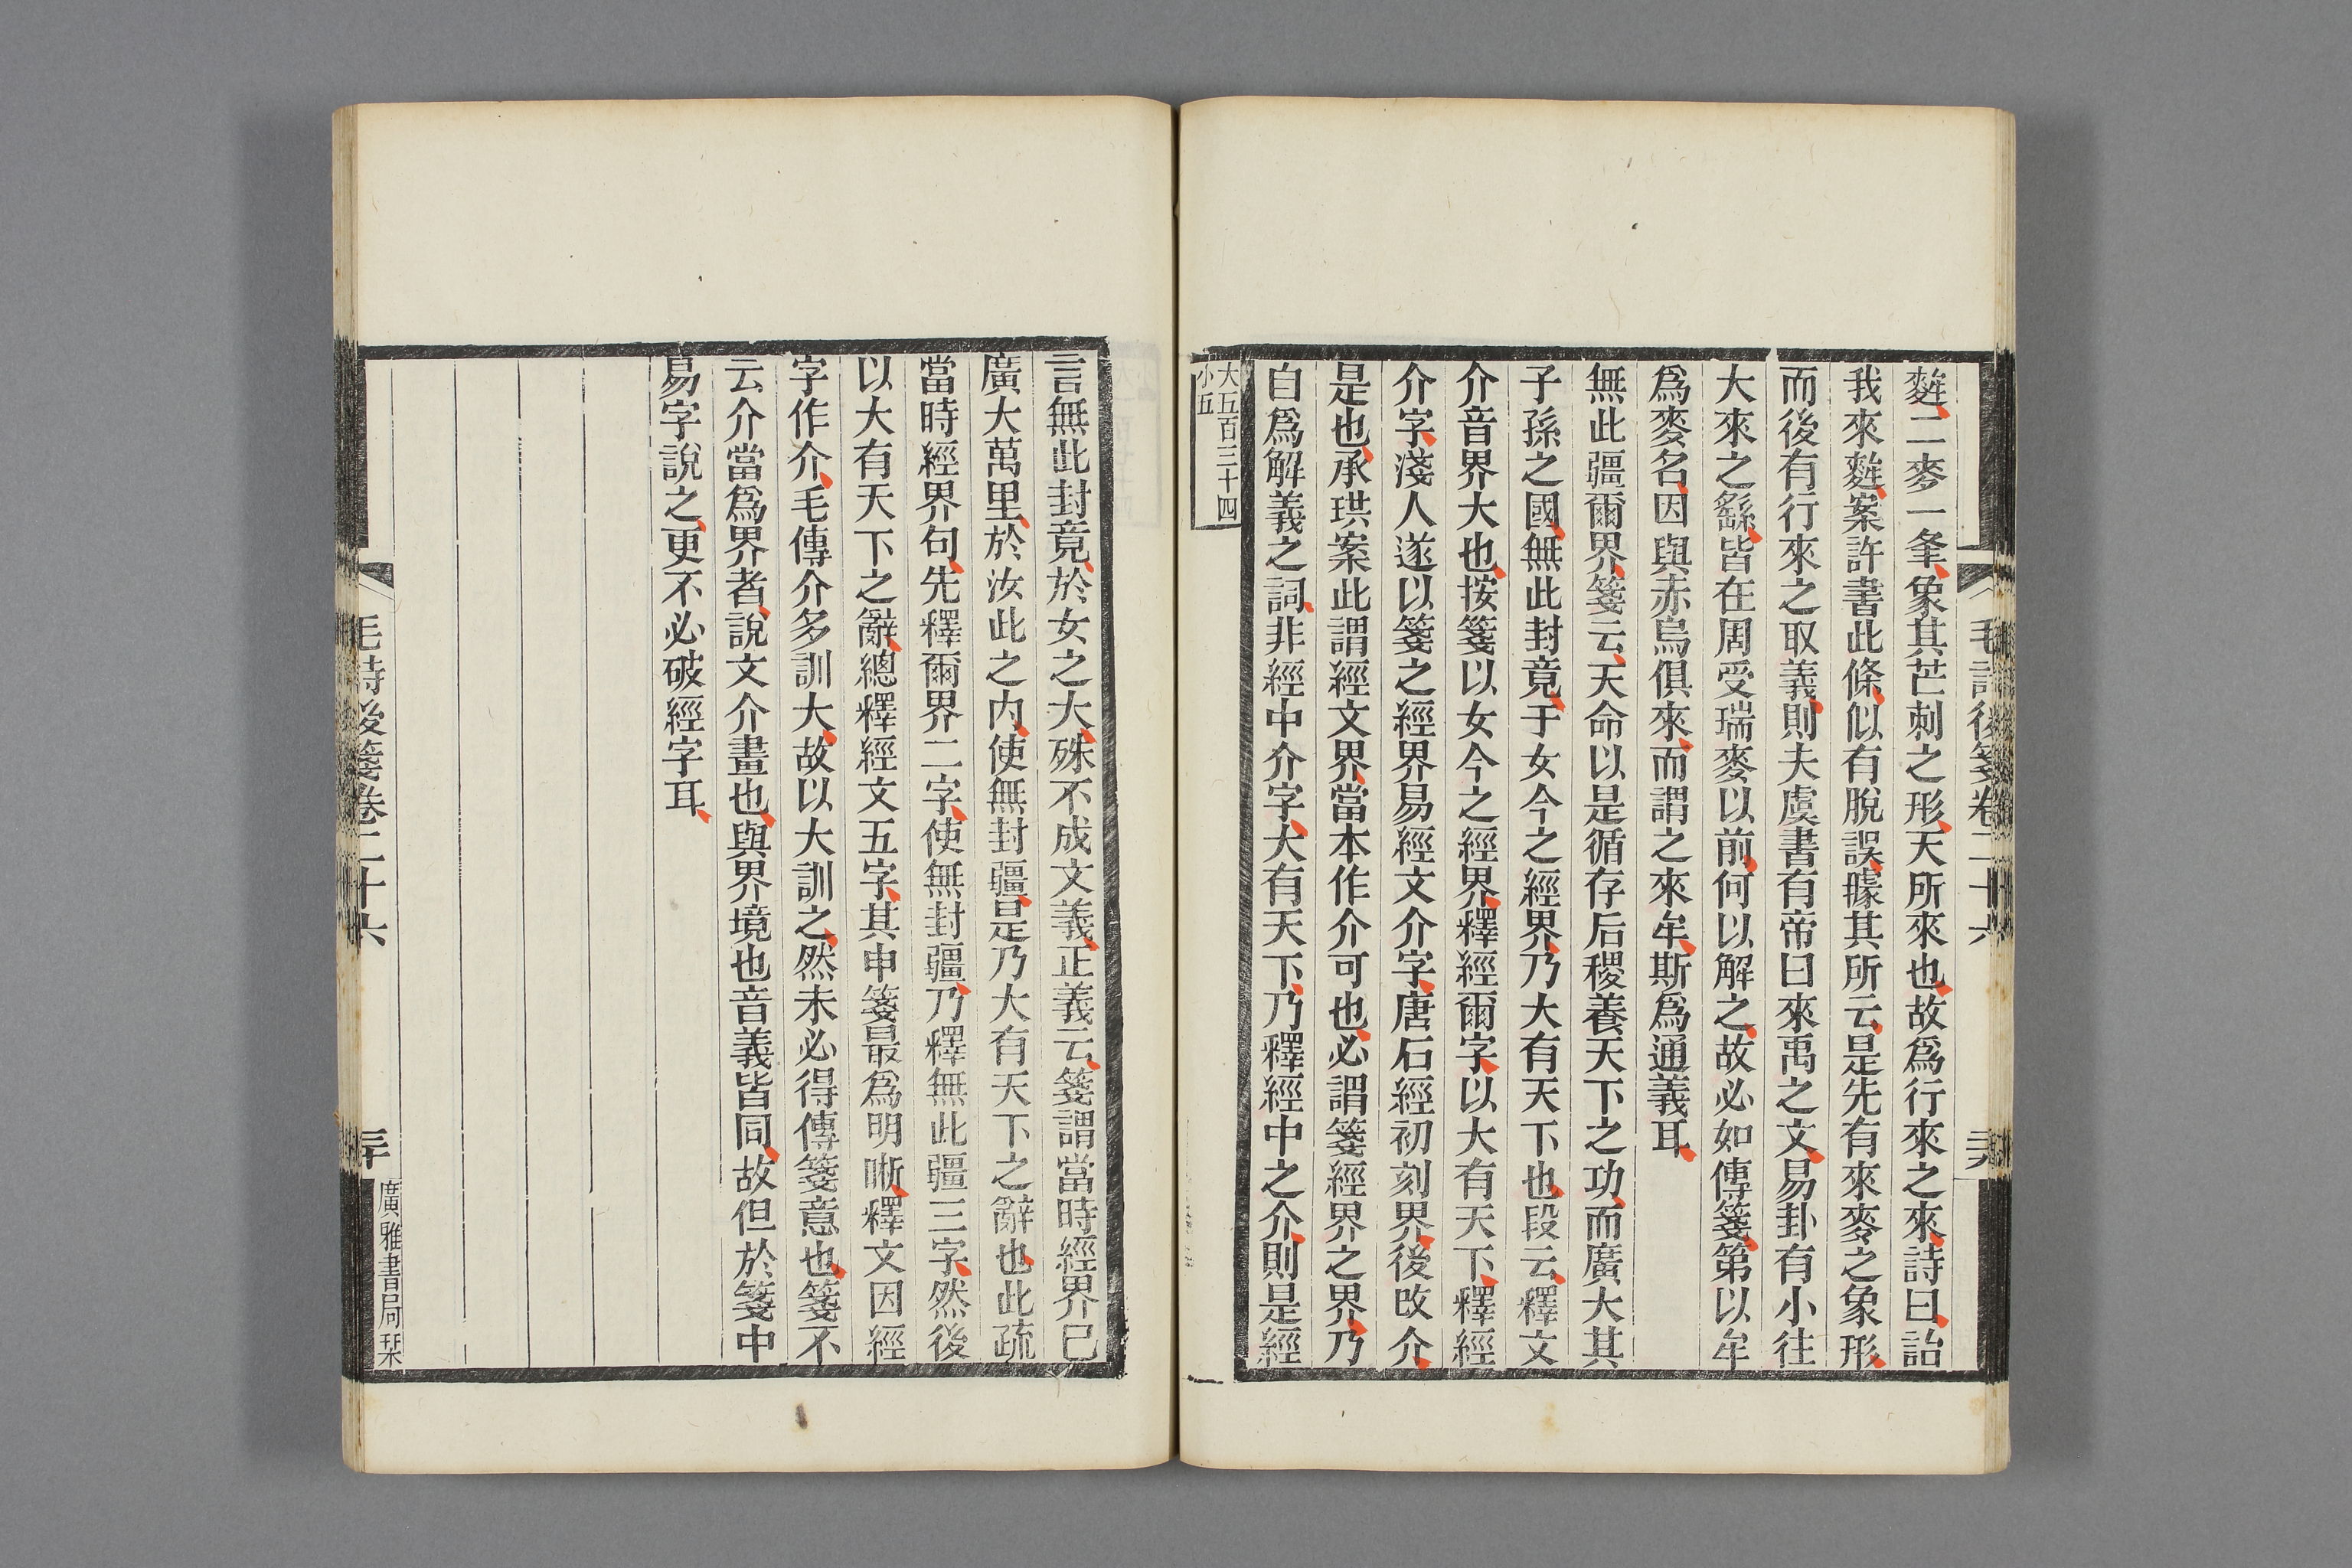 毛詩後箋卷二十六
麰二麥一夆象其芒刺之形天所來也故爲行來之來詩曰詒
我來麰案許書此條似有脫誤據其所云是先有來麥之象形
而後有行來之取義則夫虞書有帝曰來禹之文易卦有小往
大來之繇皆在周受瑞麥以前何以解之故必如傳箋第以牟
爲麥名因與赤烏俱來而謂之來牟斯爲通義耳
無此疆爾界箋云天命以是循存后稷養天下之功而廣大其
子孫之國無此封竟于女今之經界乃大有天下也段云釋文
介音界大也按箋以女今之經界釋經爾字以大有天下釋經
介字淺人遂以箋之經界易經文介字唐石經初刻界後改介
是也承珙案此謂經文界當本作介可也必謂箋經界之界乃
自爲解義之詞非經中介字大有天下乃釋經中之介則是經
大五百三十四
小五
言無此封竟於女之大殊不成文義正義云箋謂當時經界已
廣大萬里於汝此之內使無封疆是乃大有天下之辭也此疏
當時經界句先釋爾界二字使無封疆乃釋無此疆三字然後
以大有天下之辭總釋經文五字其申箋最爲明晰釋文因經
字作介毛傳介多訓大故以大訓之然未必得傳箋意也箋不
云介當爲界者說文介畫也與界境也音義皆同故但於箋中
易字說之更不必破經字耳
毛詩後箋卷二十六
廣雅書局栞